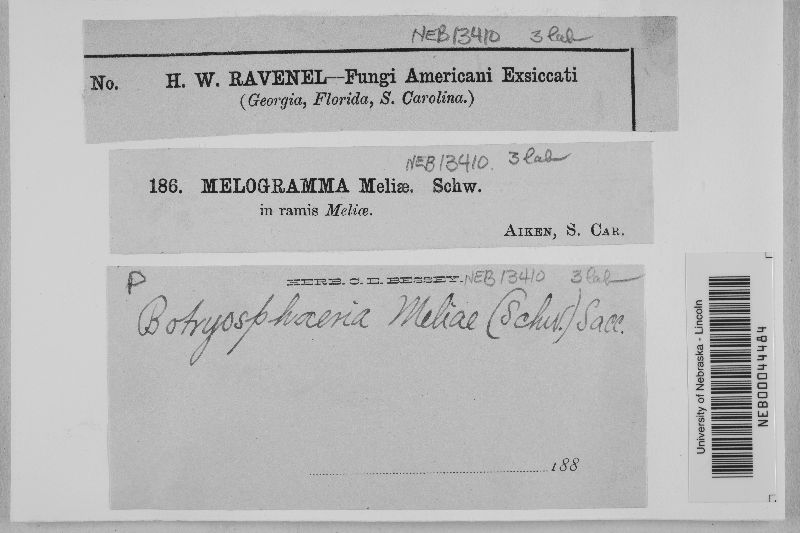 NEB 13410 3 lab
No. H. W. RAVENEL—Fungi Americani Exsiccati
(Georgia, Florida, S. Carolina.)
NEB 13410. 3 lab
186. MELOGRAMMA Meliæ. Schw.
in ramis Meliæ.
AIKEN, S. CAR.
P
HERB. C. E. BESSEY. NEB 13410 3 lab
Botryosphaeria Meliae (Schw.) Sacc.
188
University of Nebraska - Lincoln
NEB00044484